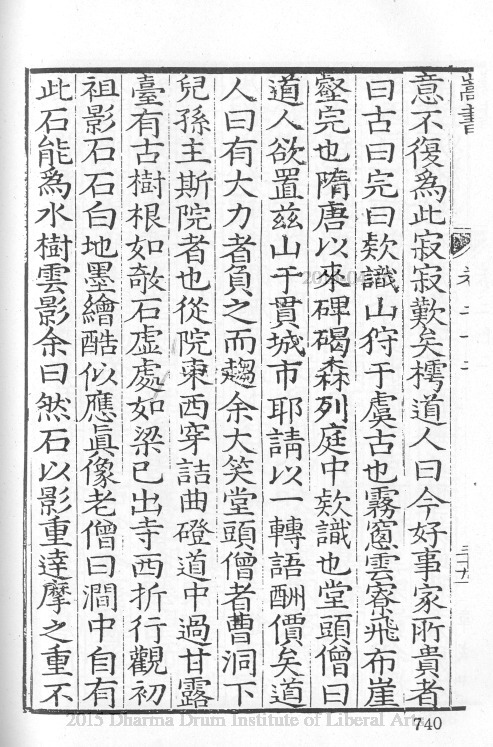 嵩書
卷二十二
三十九
意不復為此寂寂歎矣樗道人曰今好事家所貴者
曰古曰完曰欵識山狩于虞古也霧窻雲寮飛布崖
壑完也隋唐以來碑碣森列庭中欵識也堂頭僧曰
道人欲置茲山于貫城市耶請以一轉語酬價矣道
人曰有大力者負之而趨余大笑堂頭僧者曹洞下
兒孫主斯院者也從院東西穿詰曲磴道中過甘露
臺有古樹根如欹石虛處如梁已出寺西折行觀初
祖影石石白地墨繪酷似應眞像老僧曰澗中自有
此石能為水樹雲影余曰然石以影重達摩之重不
2015 Dharma Drum Institute of Liberal Arts
740